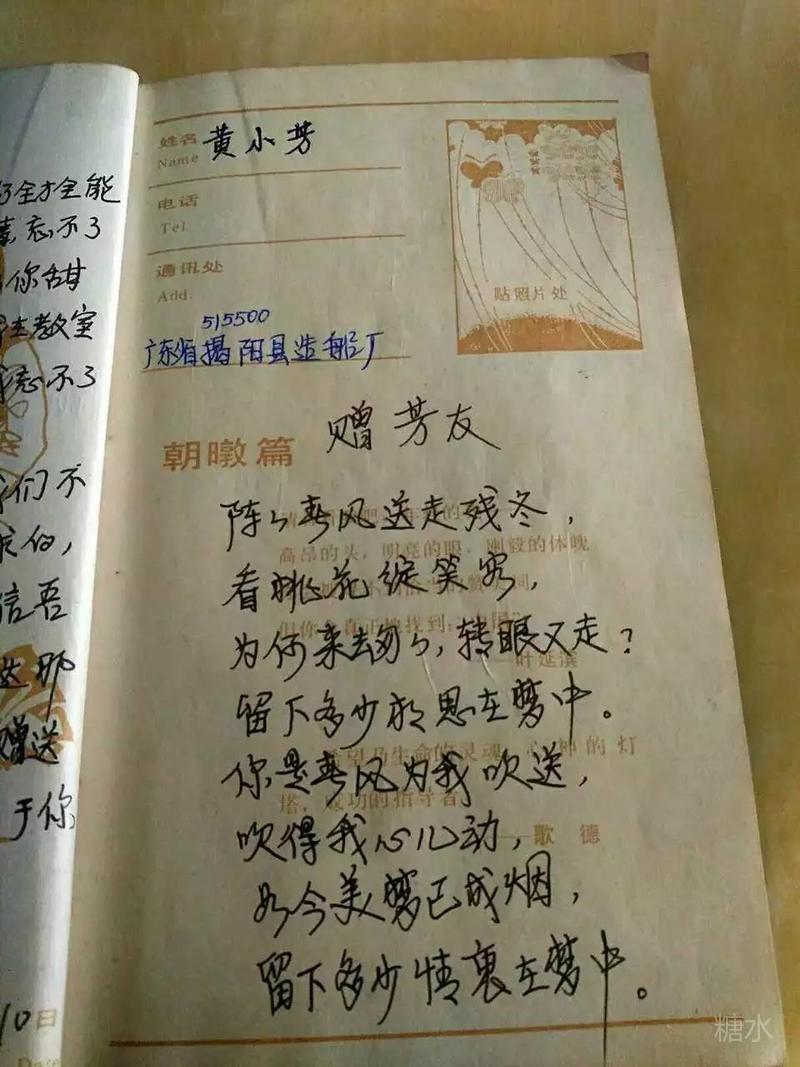 了全才全能
忘不了
你甜
教室
忘不了
们不
信吾
那
赠送
于你
10日
姓名 黄小芳
Name
电话
Tel
通讯处
Add.
515500
广东省揭阳县造船厂
贴照片处
朝暾篇
赠芳友
阵々春风送走残冬，
高昂的头，明亮的眼，刚毅的体魄
看桃花绽笑容，
为何来去匆々，转眼又走？
叶延滨
留下多少相思在梦中。
望乃生命的灵魂，心神的灯
你是春风为我吹送，
塔，成功的指导者
吹得我心儿动，
歌 德
如今美梦已成烟，
留下多少情衷在梦中。
糖水